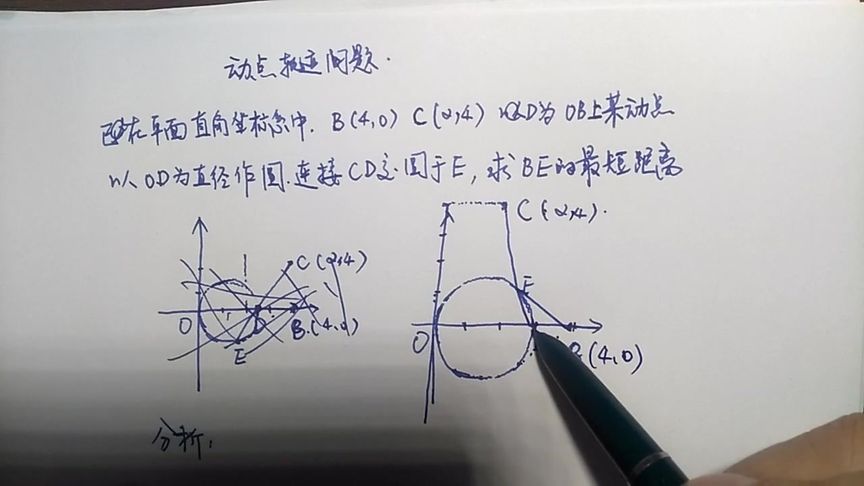 动点轨迹问题.
已知在平面直角坐标系中. B(4,0) C(2,4) 以D为OB上某动点
以OD为直径作圆.连接CD交圆于E,求BE的最短距离
C(2,4).
C(2,4)
E
O D B.(4,0)
E
O B(4,0)
分析: